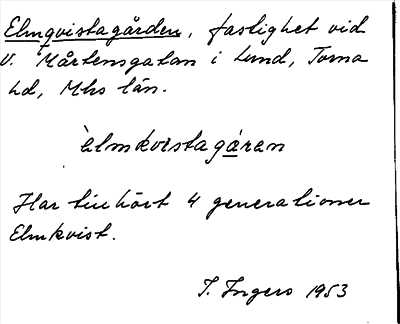 Elmqvistagården, fastighet vid
V. Mårtensgatan i Lund, Torna
hd, Mhs län.
àlmkvistagáran
Har tillhört 4 generationer
Elmkvist.
I. Ingers 1953